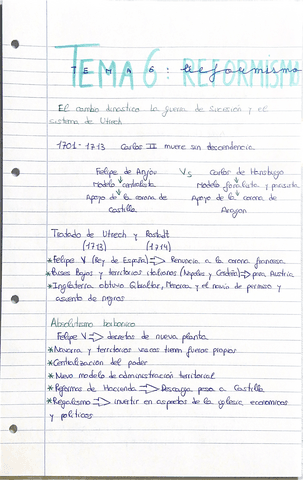 TEMA 6: REFORMISMO
TEMA 6: Reformismo
El cambio dinastico la guerra de sucesión y el
sistema de Utrech
1701-1713 Carlos II muere sin decendencia
Felipe de Anjou Vs Carlos de Hansburgo
Modelo centralista Modelo foralista y pactista
Apoyo de la corona de Apoyo de la corona de
Castilla Aragon
Tratado de Utrech y Rastatt
(1713) (1714)
*Felipe V (Rey de España) => Renuncia a la corona francesa
*Paises Bajos y territorios italianos (Napoles y Cerdeña) => para Austria
*Inglaterra obtuvo Gibraltar, Menorca y el navio de permiso y
asiento de negros
Absolutismo borbonico
Felipe V => decretos de nueva planta
*Navarra y territorios vascos tienen fueros propios
*Centralización del poder
*Nuevo modelo de administración territorial
*Reformas de Haccienda => Descarga peso a Castilla
*Regalismo => invertir en aspectos de la iglesia, economicos
y politicos